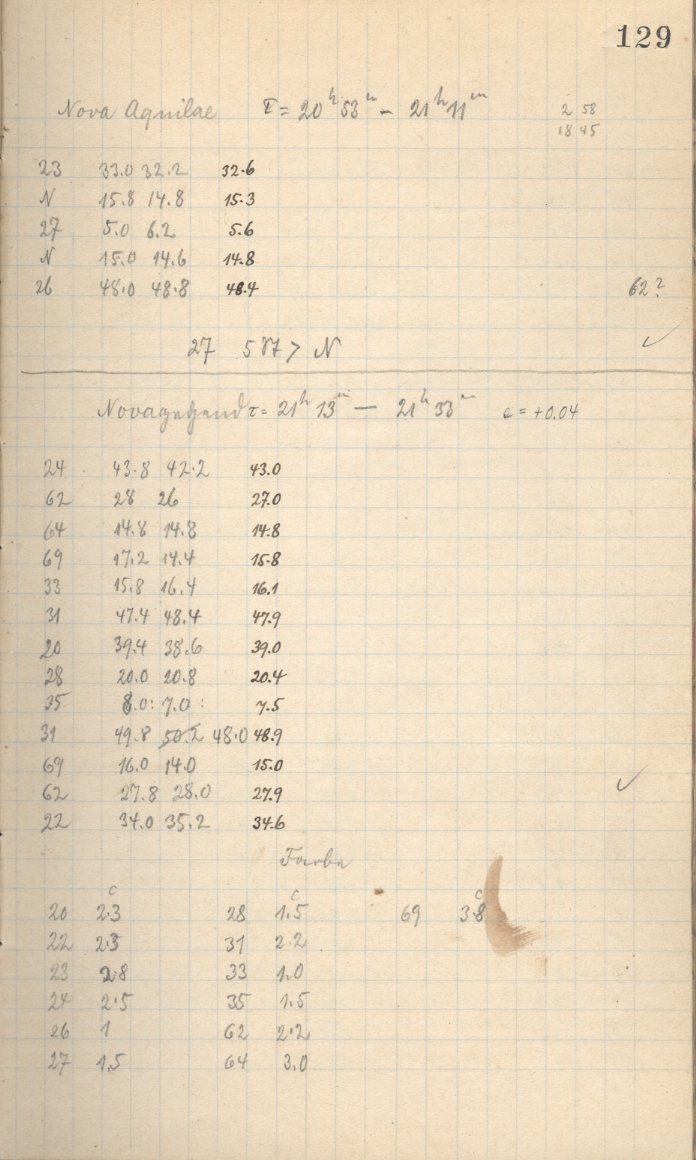 129
Nova Aquilae τ = 20ʰ 53ᵐ – 21ʰ 11ᵐ 2 58
18 45
23 33.0 32.2 32.6
N 15.8 14.8 15.3
27 5.0 6.2 5.6
N 15.0 14.6 14.8
26 48.0 48.8 48.4 62?
27 5 > N ✓
Novagegend τ = 21ʰ 13ᵐ — 21ʰ 33ᵐ e = +0.04
24 43.8 42.2 43.0
62 28 26 27.0
64 14.8 14.8 14.8
69 17.2 14.4 15.8
33 15.8 16.4 16.1
31 47.4 48.4 47.9
20 39.4 38.6 39.0
28 20.0 20.8 20.4
35 8.0: 7.0: 7.5
31 49.8 50.2 48.0 48.9
69 16.0 14.0 15.0
62 27.8 28.0 27.9 ✓
22 34.0 35.2 34.6
Farbe
c c c
20 2.3 28 1.5 69 3.8
22 2.3 31 2.2
23 2.8 33 1.0
24 2.5 35 1.5
26 1 62 2.2
27 1.5 64 3.0